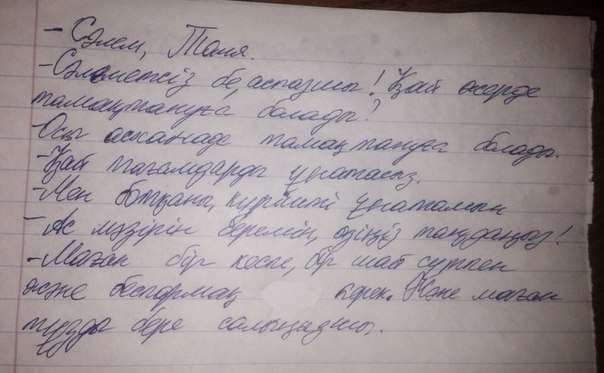 - Сәлем, Таня.
- Сәлеметсіз бе, аспазшы! Қай жерде
тамақтануға болады?
- Осы асханаде тамақтануға болады.
- Қай тағамдарды ұнатасыз.
- Мен ботқаны, күрішті ұнатамын
- Ас мәзірін беремін, өзіңіз таңдаңыз!
- Маған бір кеспе, бір шай сүтпен
және беспармақ керек. Және маған
тұзды бере салыңызшы.